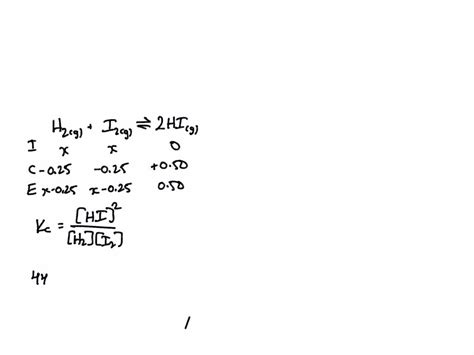 H₂(g) + I₂(g) ⇌ 2HI(g)
I x x 0
C -0.25 -0.25 +0.50
E x-0.25 x-0.25 0.50
Kc = [HI]² / [H₂][I₂]
44
/